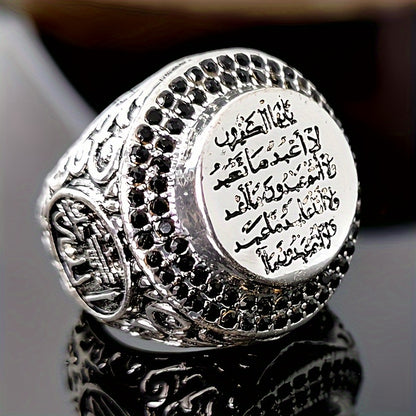 يأيها الكفرون
لا أعبد ما تعبد
ولا أنتم عبدون ما أعبد
ولا أنا عابد ما عبد
ولا أنتم عبدون ما